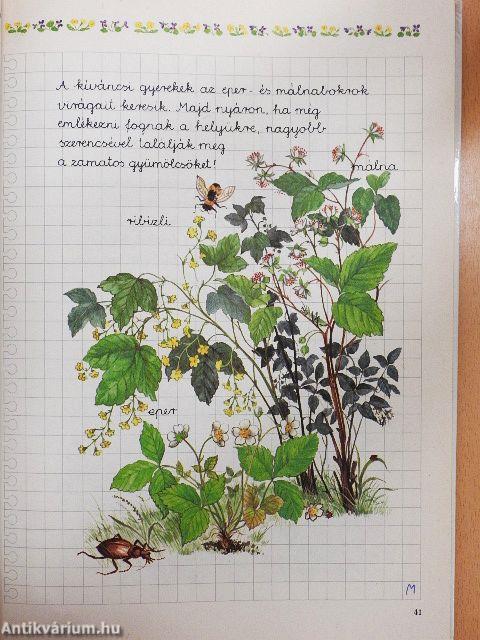 A kíváncsi gyerekek az eper- és málnabokrok
virágait keresik. Majd nyáron, ha még
emlékezni fognak a helyükre, nagyobb
szerencsével találják meg
a zamatos gyümölcsöket!
málna
ribizli
eper
M
41
Antikvárium.hu